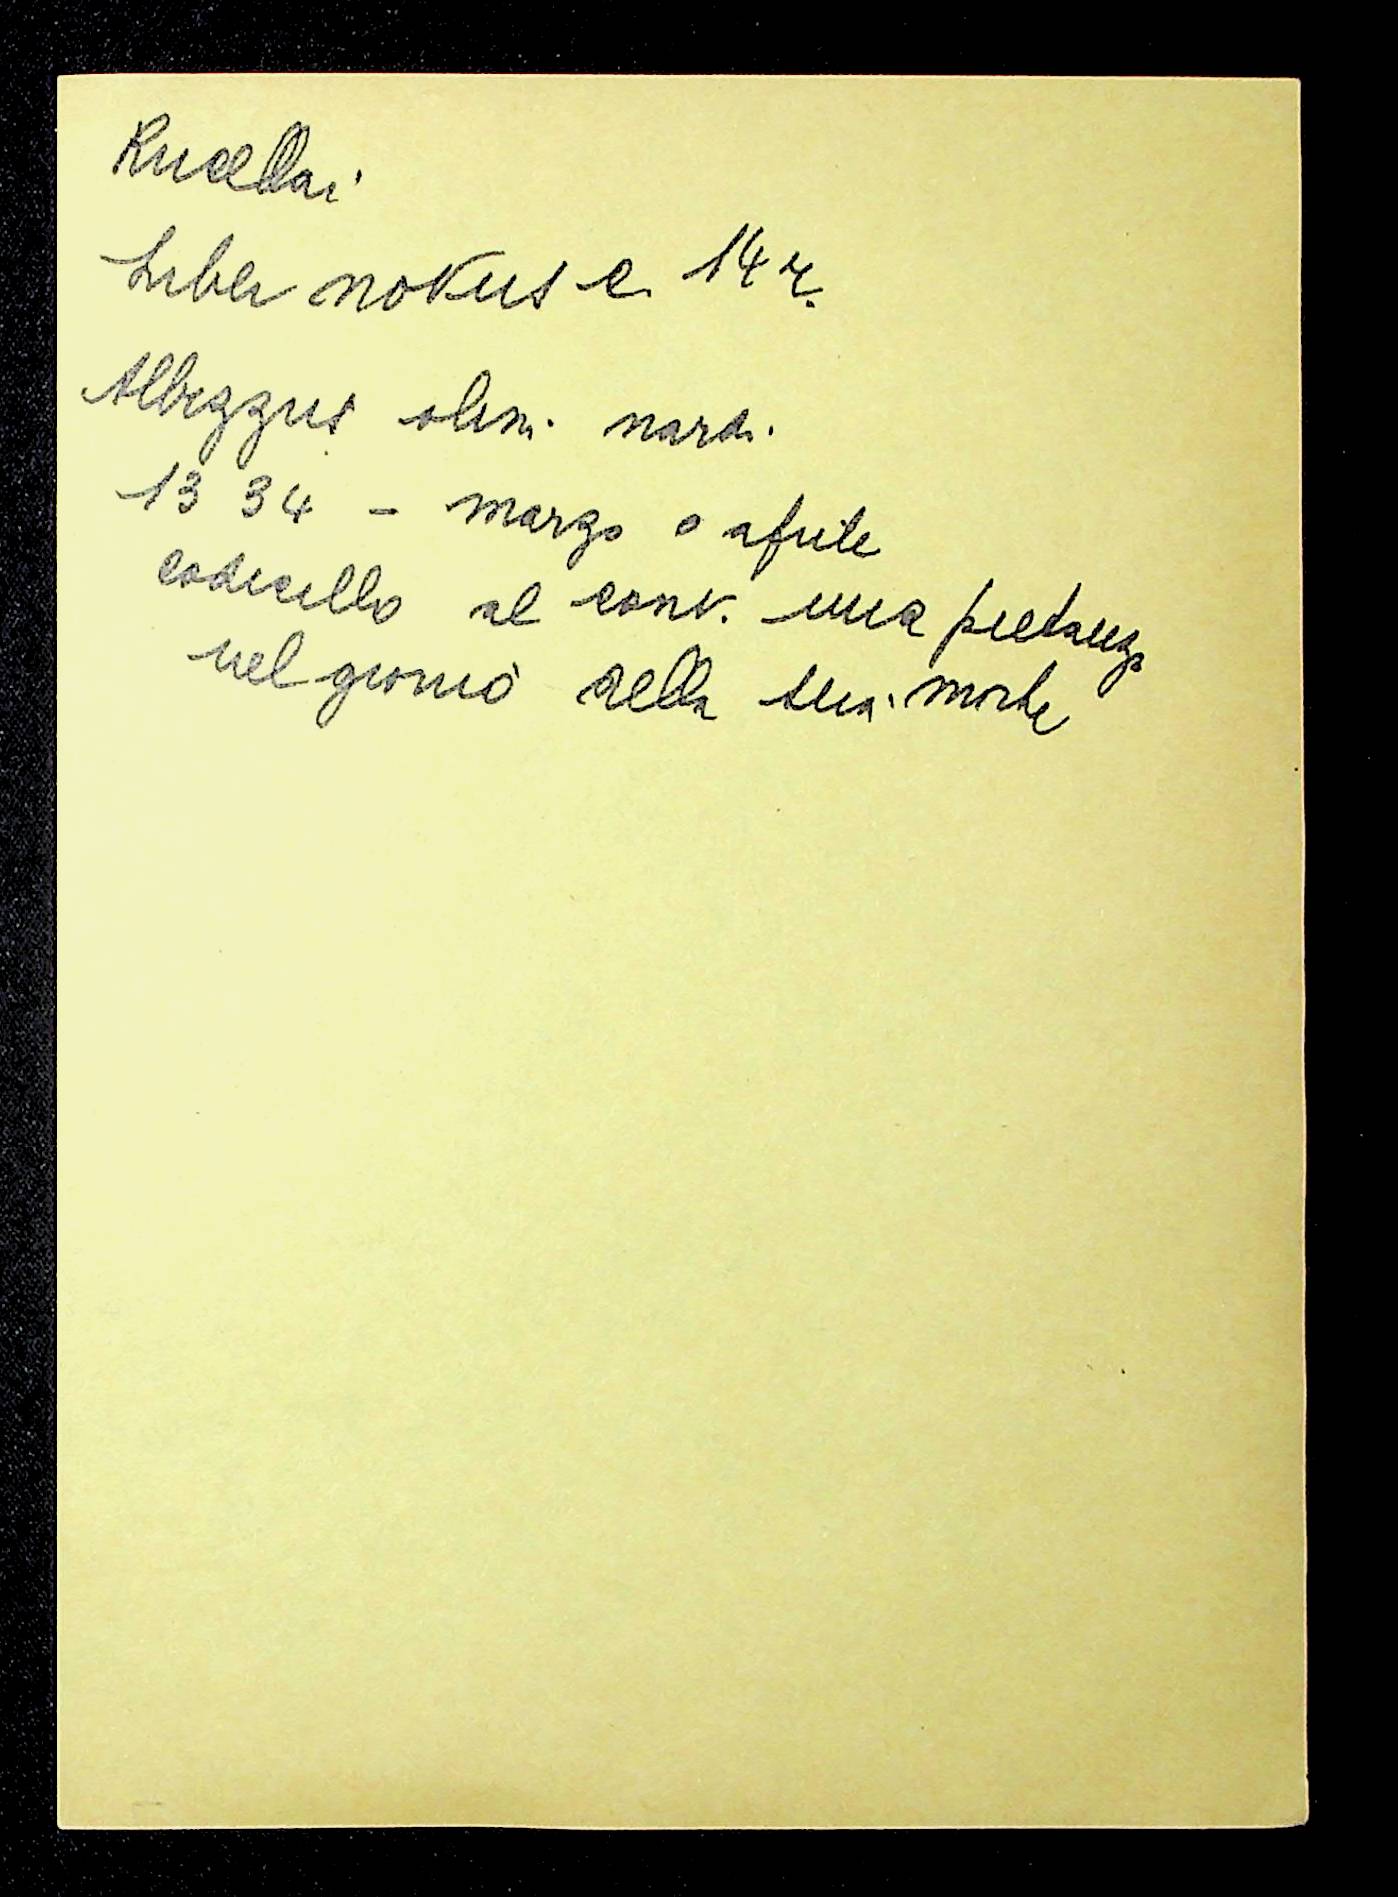 Rucellai
Liber novus c. 14 r.
Albizzus olim nardi.
1334 - marzo o aprile
codicillo al conv. una pietanza
nel giorno della sua morte